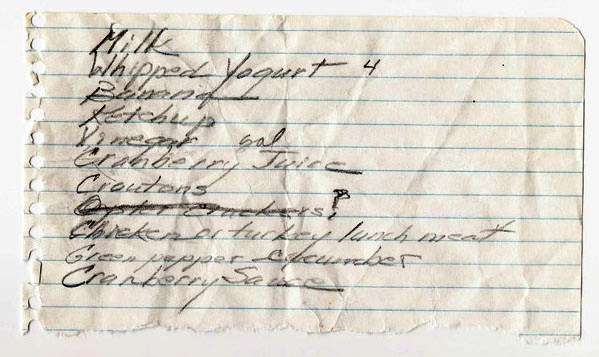 Milk
Whipped Yogurt 4
Banana
Ketchup
Vinegar gal
Cranberry Juice
Croutons
Oyster Crackers?
Chicken or turkey lunch meat
Green pepper & cucumber
Cranberry Sauce